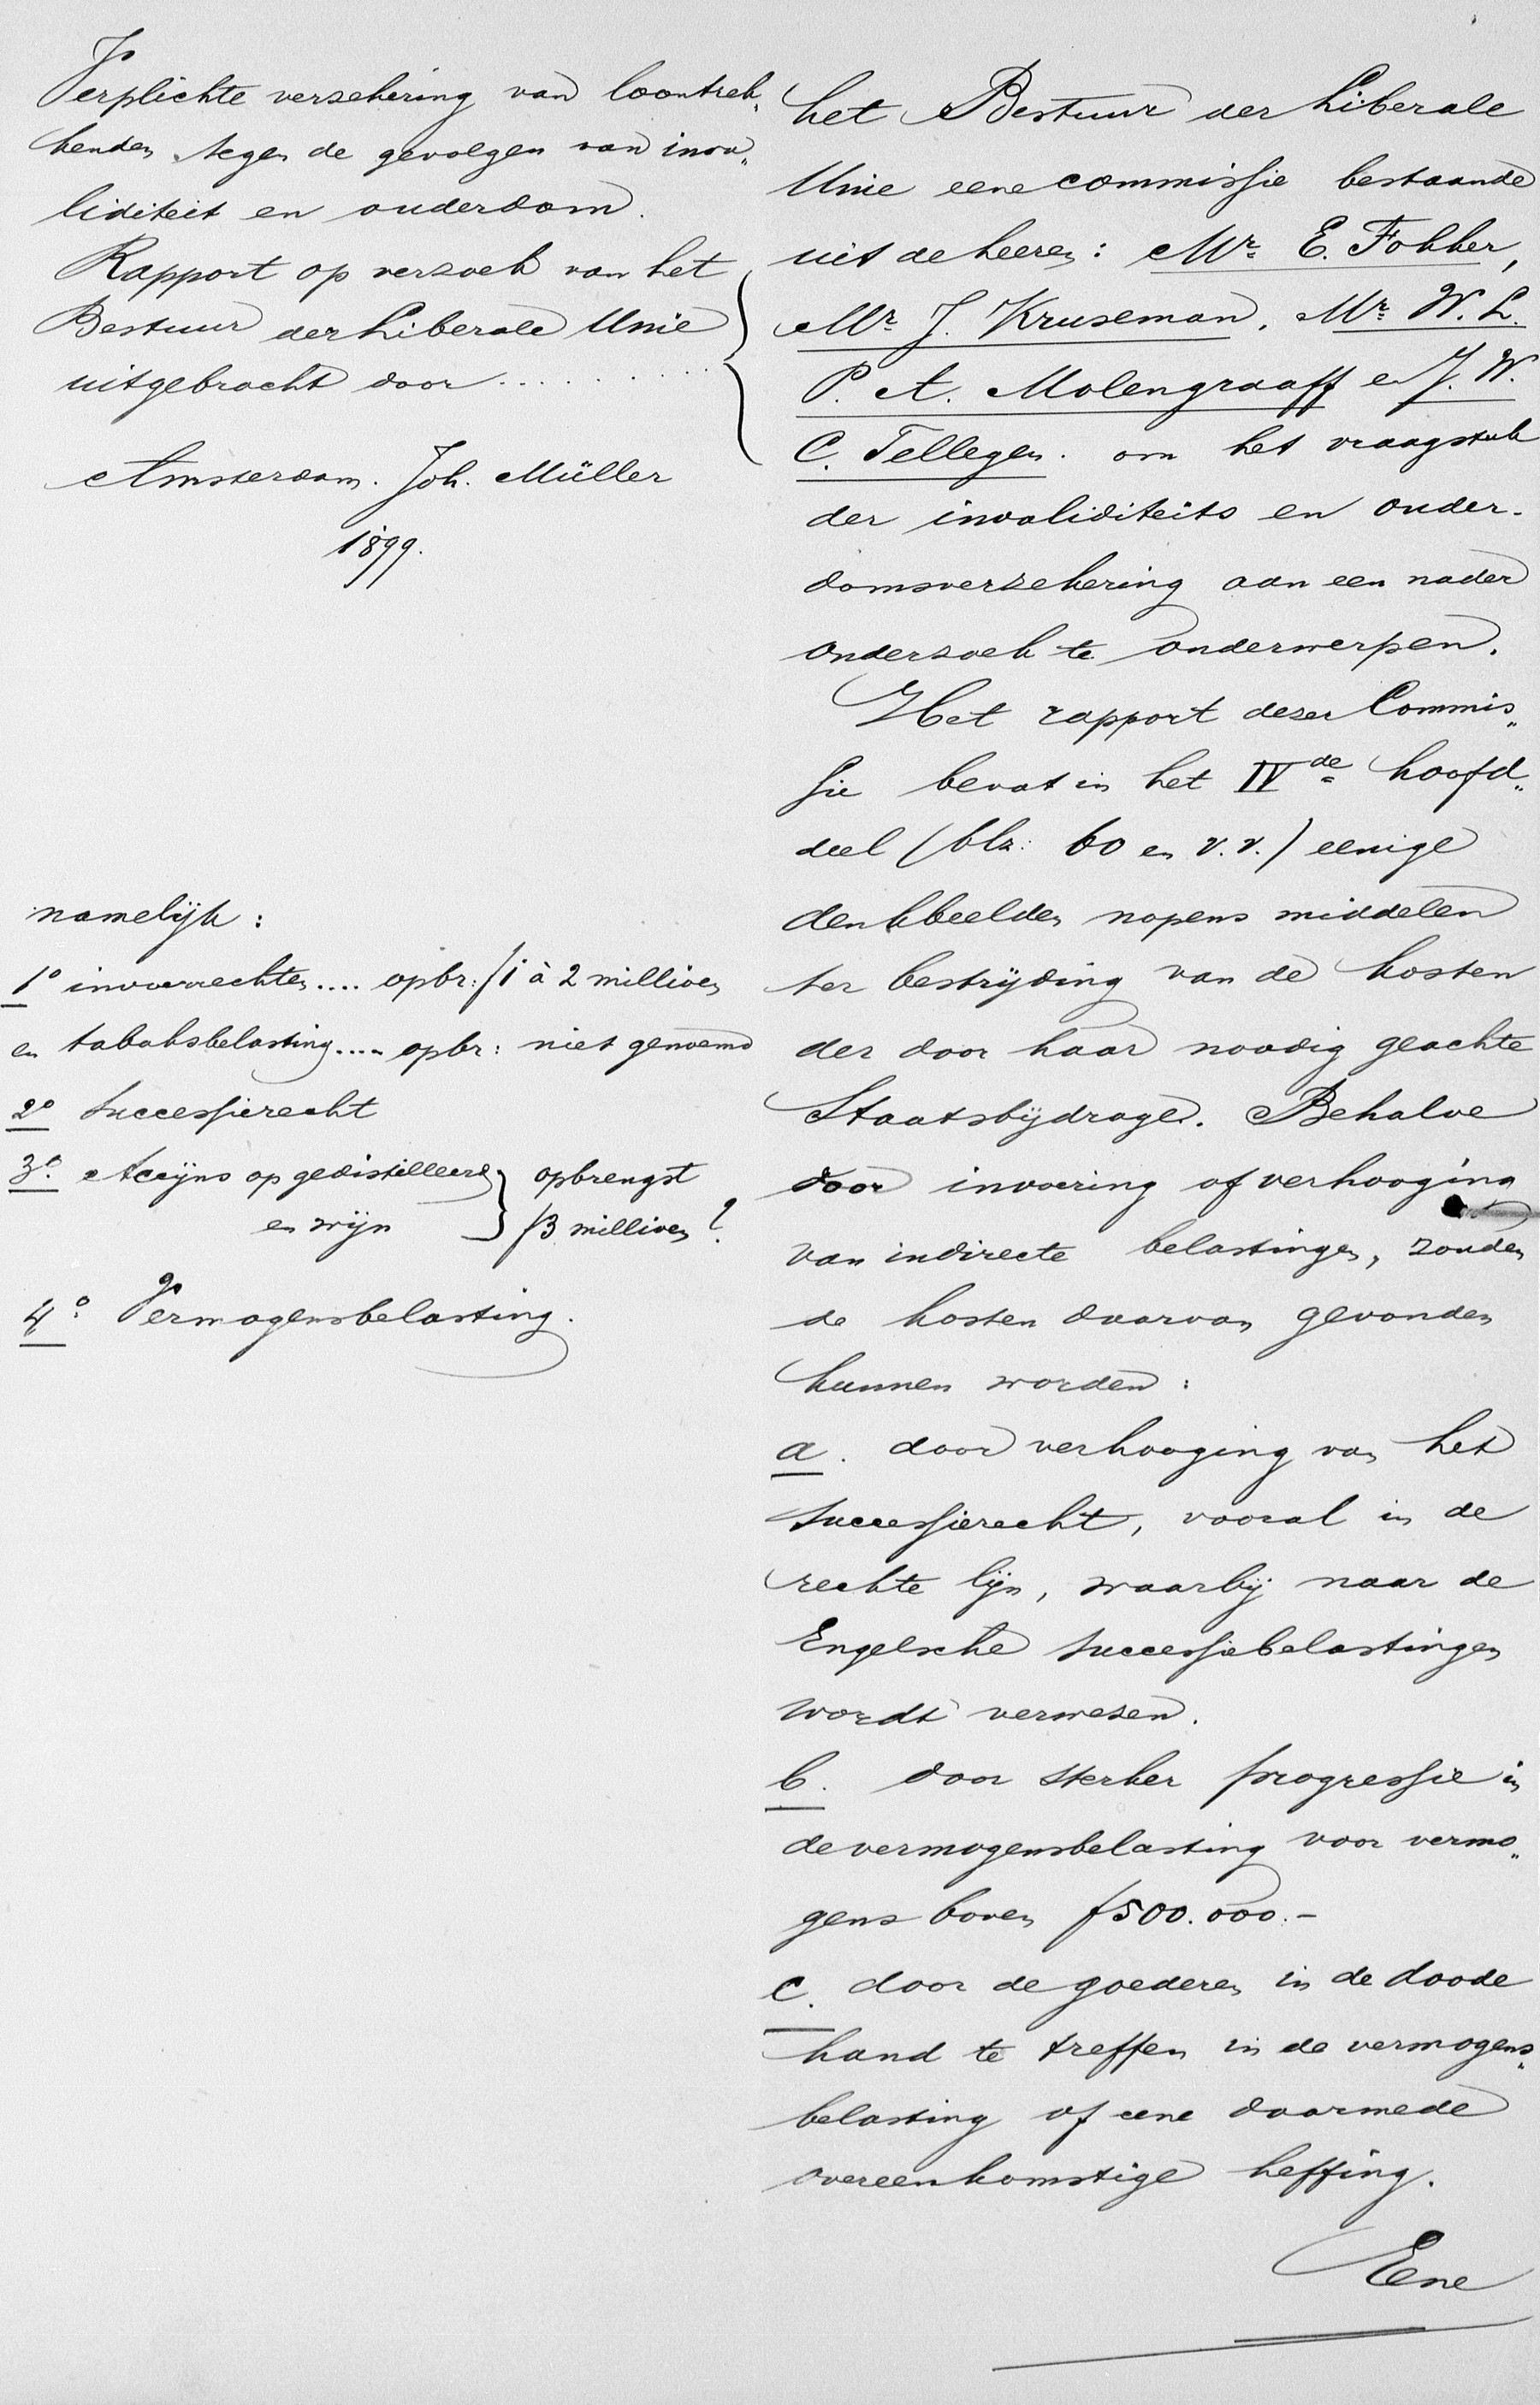 Verplichte verzekering van loontrek„
kenden tegen de gevolgen van inva„
liditeit en ouderdom.
Rapport op verzoek van het
Bestuur der Liberale Unie
uitgebracht door..........
Amsterdam. Joh. Müller
1899.
namelijk:
1º invoerrechten.... opbr: f 1 à 2 millioen
en tabaksbelasting.... opbr: niet genoemd
2º Successierecht
3º. Accijns op gedistilleerd } opbrengst
en wijn f 3 millioen?
4º. Vermogensbelasting.
het Bestuur der Liberale
Unie eene commissie bestaande
uit de heeren: Mr. E. Fokker,
Mr. J. Kruseman, Mr. W. L.
P. A. Molengraaff en J. W.
C. Tellegen. om het vraagstuk
der invaliditeits en ouder-
domsverzekering aan een nader
onderzoek te onderwerpen.
Het rapport dezer Commis„
sie bevat in het IVde hoofd„
deel (blz: 60 en v.v.) eenige
denkbeelden nopens middelen
ter bestrijding van de kosten
der door haar noodig geachte
Staatsbijdrage. Behalve
door invoering of verhooging
van indirecte belastingen, zouden
de kosten daarvan gevonden
kunnen worden:
a. door verhooging van het
successierecht, vooral in de
rechte lijn, waarbij naar de
Engelsche successiebelastingen
wordt verwezen.
b. door sterker progressie in
de vermogensbelasting voor vermo„
gens boven f 500.000.-
c. door de goederen in de doode
hand te treffen in de vermogens„
belasting of eene daarmede
overeenkomstige heffing.
Eene